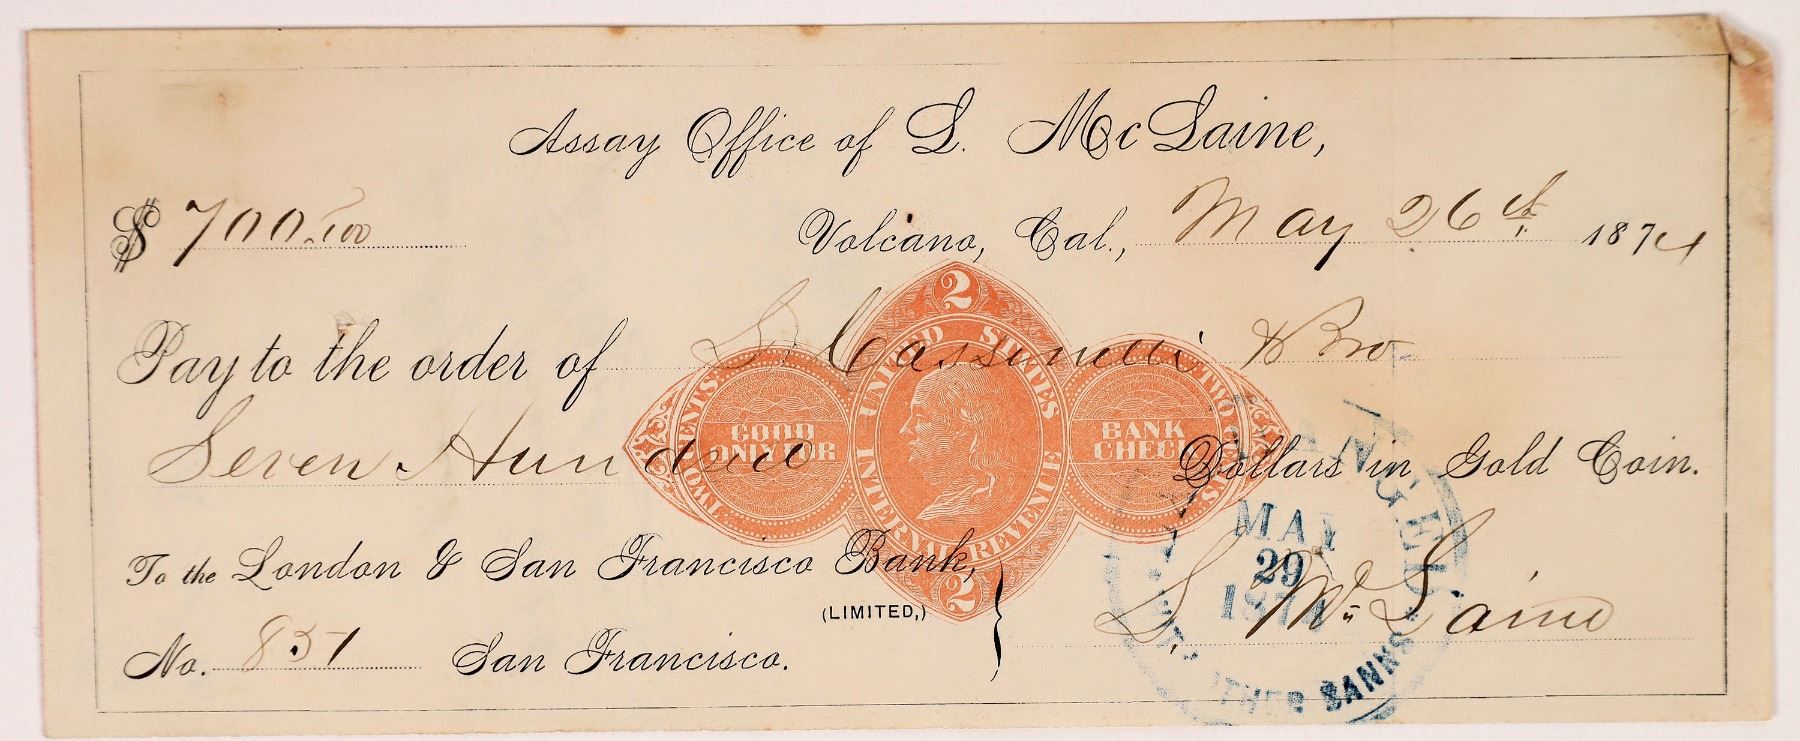 Assay Office of L. McLaine,
$ 700.00/100 Volcano, Cal., May 26th 1874
Pay to the order of L Cassinelli & Bro
Seven Hundred Dollars in Gold Coin.
To the London & San Francisco Bank,
(LIMITED,)
No. 851 San Francisco.
L. McLaine
2
UNITED STATES
INTERNAL REVENUE
TWO CENTS.
GOOD
ONLY FOR
BANK
CHECK
TWO CENTS
2
MAY
29
1874
BANKS